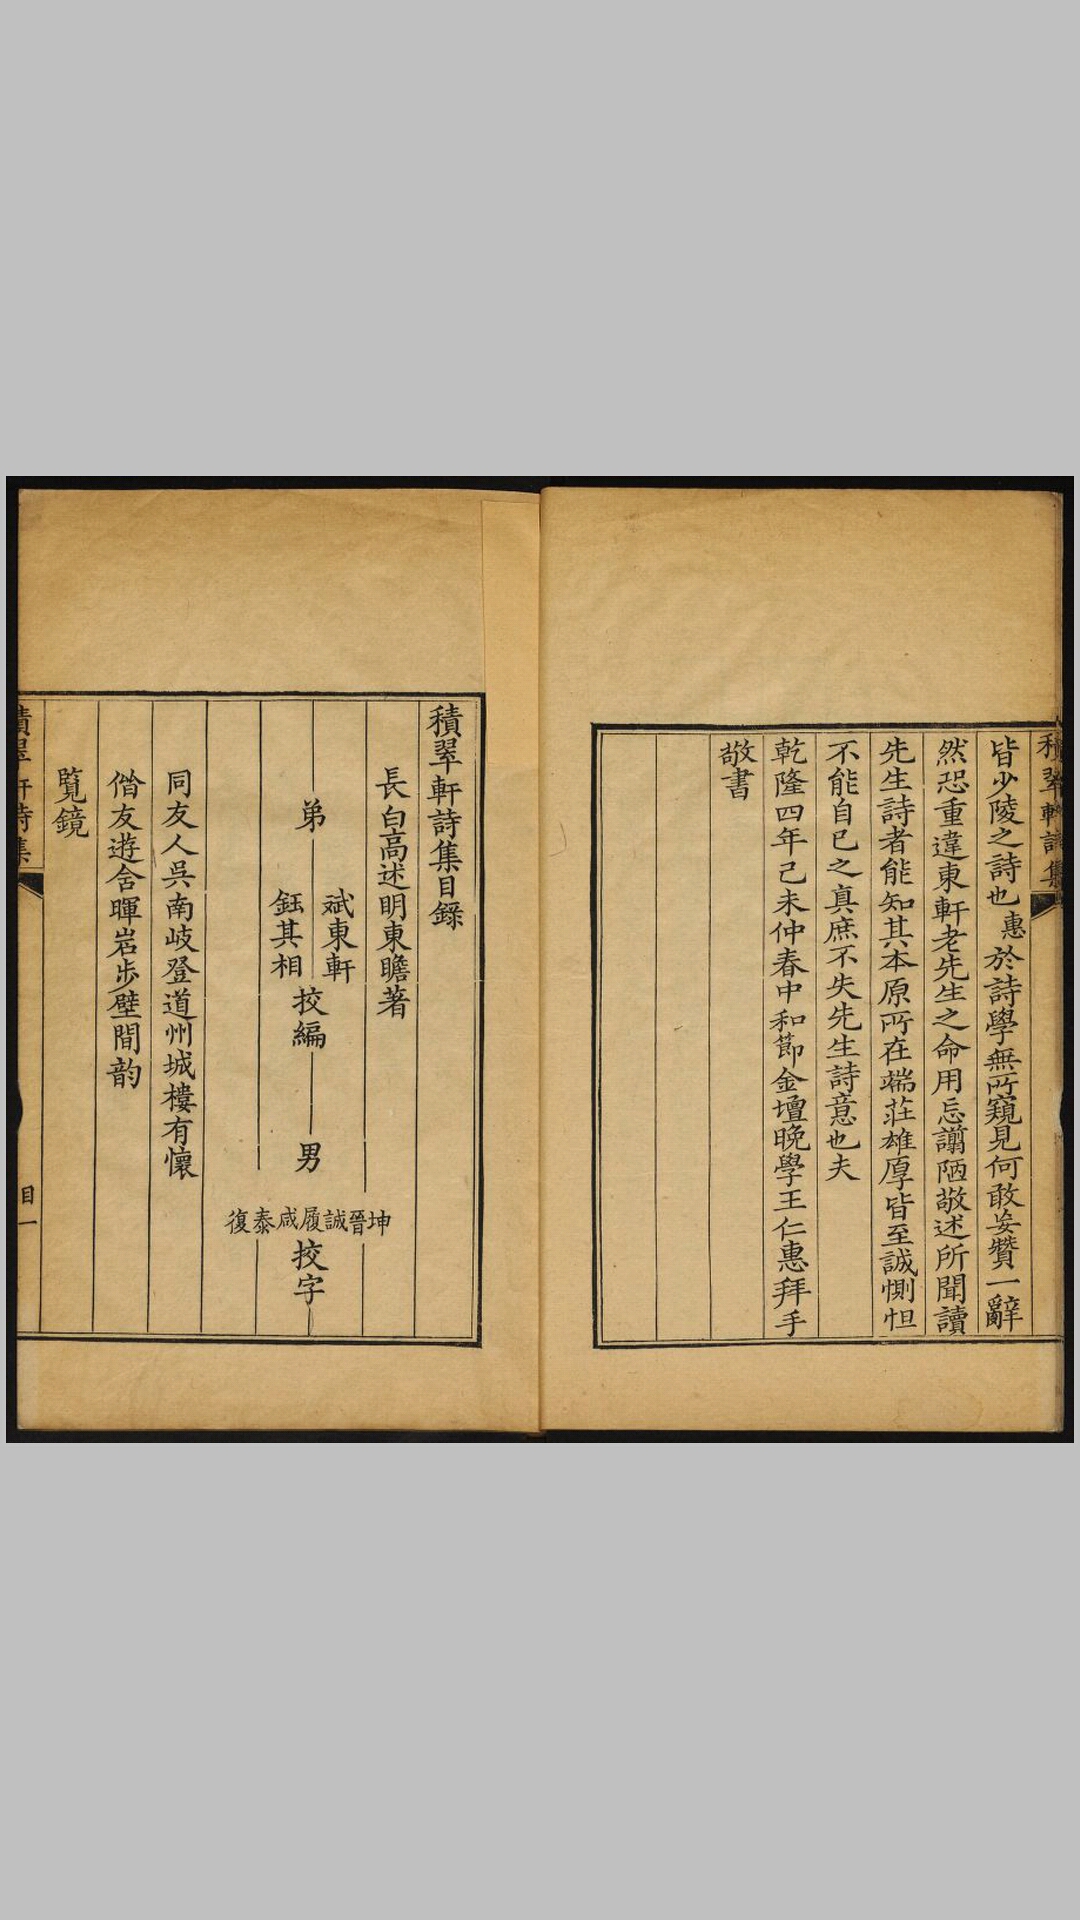 積翠軒詩集
皆少陵之詩也惠於詩學無所窺見何敢妄贊一辭
然恐重違東軒老先生之命用忘譾陋敬述所聞讀
先生詩者能知其本原所在端莊雄厚皆至誠惻怛
不能自已之真庶不失先生詩意也夫
乾隆四年己未仲春中和節金壇晚學王仁惠拜手
敬書
積翠軒詩集目錄
長白高述明東瞻著
弟
斌東軒
鈺其相
挍編
男
坤晉誠履咸泰復
挍字
同友人吳南岐登道州城樓有懷
偕友遊含暉岩步壁間韵
覽鏡
積翠軒詩集
目一